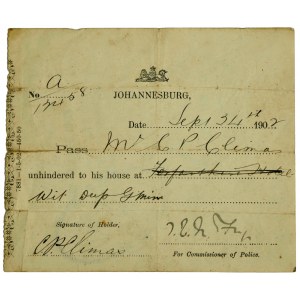 No. A
JOHANNESBURG,
Date Sept 24th 1902
Pass Mr C P Climas
unhindered to his house at
Wit Deep G Min
Signature of Holder,
C P Climas
For Commissioner of Police.